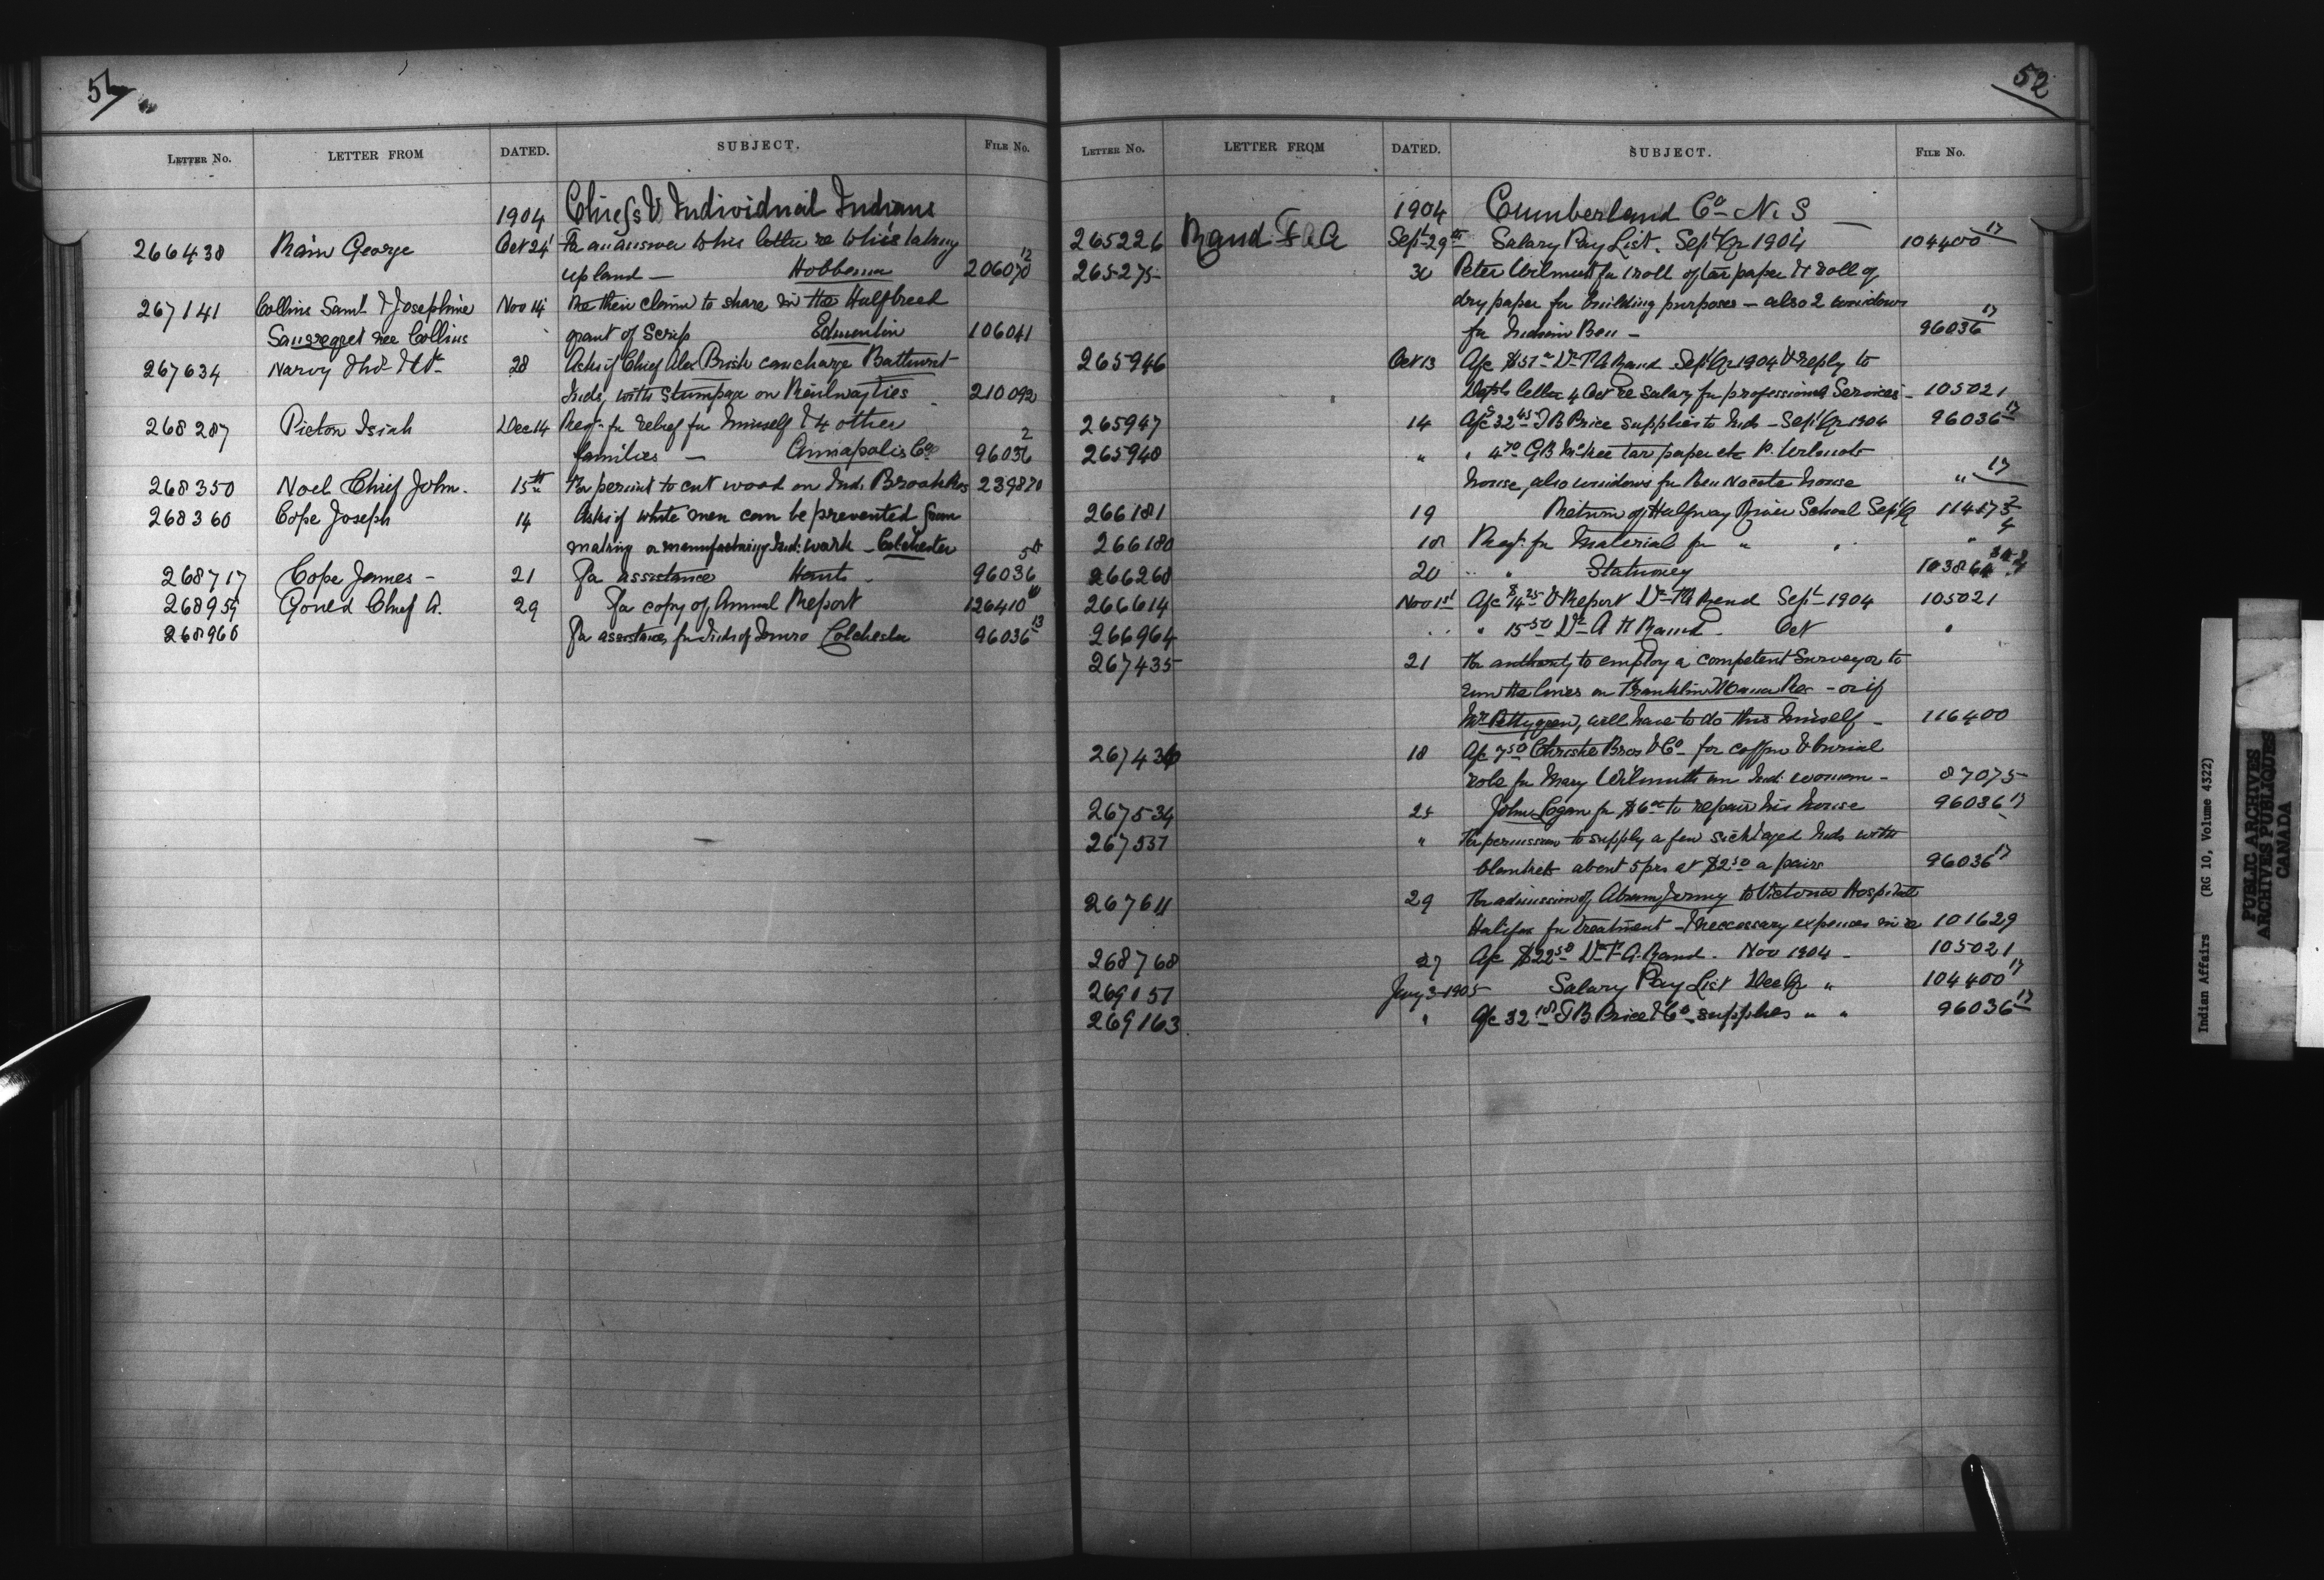 51
LETTER No. LETTER FROM DATED. SUBJECT. FILE No.
1904 Chiefs & Individual Indians
266438 Rain George Oct 24 For an answer to his letter re to his taking
up land — Hobbema 206070 12
267141 Collins Saml & Josephine Nov 14 Re their claim to share in the Halfbreed
Sansregret nee Collins grant of Scrip Edmonton 106041
267634 Narvy 28 Asks if Chief Alex can charge Bathurst
Inds, with Stumpage on Railway Ties 210092
268287 Picton Isiah Dec 14 Reqt. for relief for himself & 4 other
families — Annapolis Co 96036 2
268350 Noel Chief John. 15th For permit to cut wood on Ind. Brook Res 239870
268360 Cope Joseph 14 Asks if white men can be prevented from
making or manufacturing Ind: work — Colchester
268717 Cope James — 21 For assistance Hants — 96036
268959 Gould Chief A. 29 For copy of Annual Report 126410
268960 For assistance, for Inds of Truro Colchester 96036 13
52
LETTER No. LETTER FROM DATED. SUBJECT. FILE No.
1904 Cumberland Co. N. S
265226 Rand F. A. Sept 29th Salary Pay List. Sept Qr 1904 104400 17
265275 30 Peter Wilmut for 1 roll of tar paper & 1 roll of
dry paper for building purposes — also 2 windows
for Indian Ben — 96036 17
265946 Oct 13 A/c Dr F A Rand Sept Qr 1904 & reply to
Depts letter 4 Oct re Salary for professional Services — 105021
265947 14 A/c 32 45 T B Price supplies to Inds — Sept Qr 1904 96036 17
265948 " " 4 70 G B McKee tar paper etc P. Wilmots
house, also windows for Ben Nocote house " 17
266181 19 Return of Halfway River School Sept Qr
266180 18 Reqt. for Material for " " "
266268 20 " " Stationery
266614 Nov 1st A/c 14 25 & Report Dr F A Rand Sept 1904 105021
266964 " " 15 50 Dr A Rand. Oct "
267435 21 For authority to employ a competent Surveyor to
run the lines on Franklin Manor Res — or if
Mr Pettygrew, will have to do this himself — 116400
267436 18 A/c 7 50 Christie Bros & Co — for coffin & burial
robe for Mary Wilmuth an Ind: woman — 87075
267534 25 John Logan for $6 00 to repair his house 96036 17
267537 " For permission to supply a few sick & aged Inds with
blankets about 5 prs at $2 50 a pair 96036 17
267611 29 For admission of Abram Jermy to Victoria Hospital
Halifax for treatment — & neccessary expenses 101629
268768 27 A/c $22 50 Dr F. A. Rand. Nov 1904 — 105021
269157 Jany 3 1905 Salary Pay List Dec Qr " 104400 17
269163 " A/c 32 T B Price & Co — supplies " " 96036 17
Indian Affairs (RG 10, Volume 4322)
PUBLIC ARCHIVES
ARCHIVES PUBLIQUES
CANADA